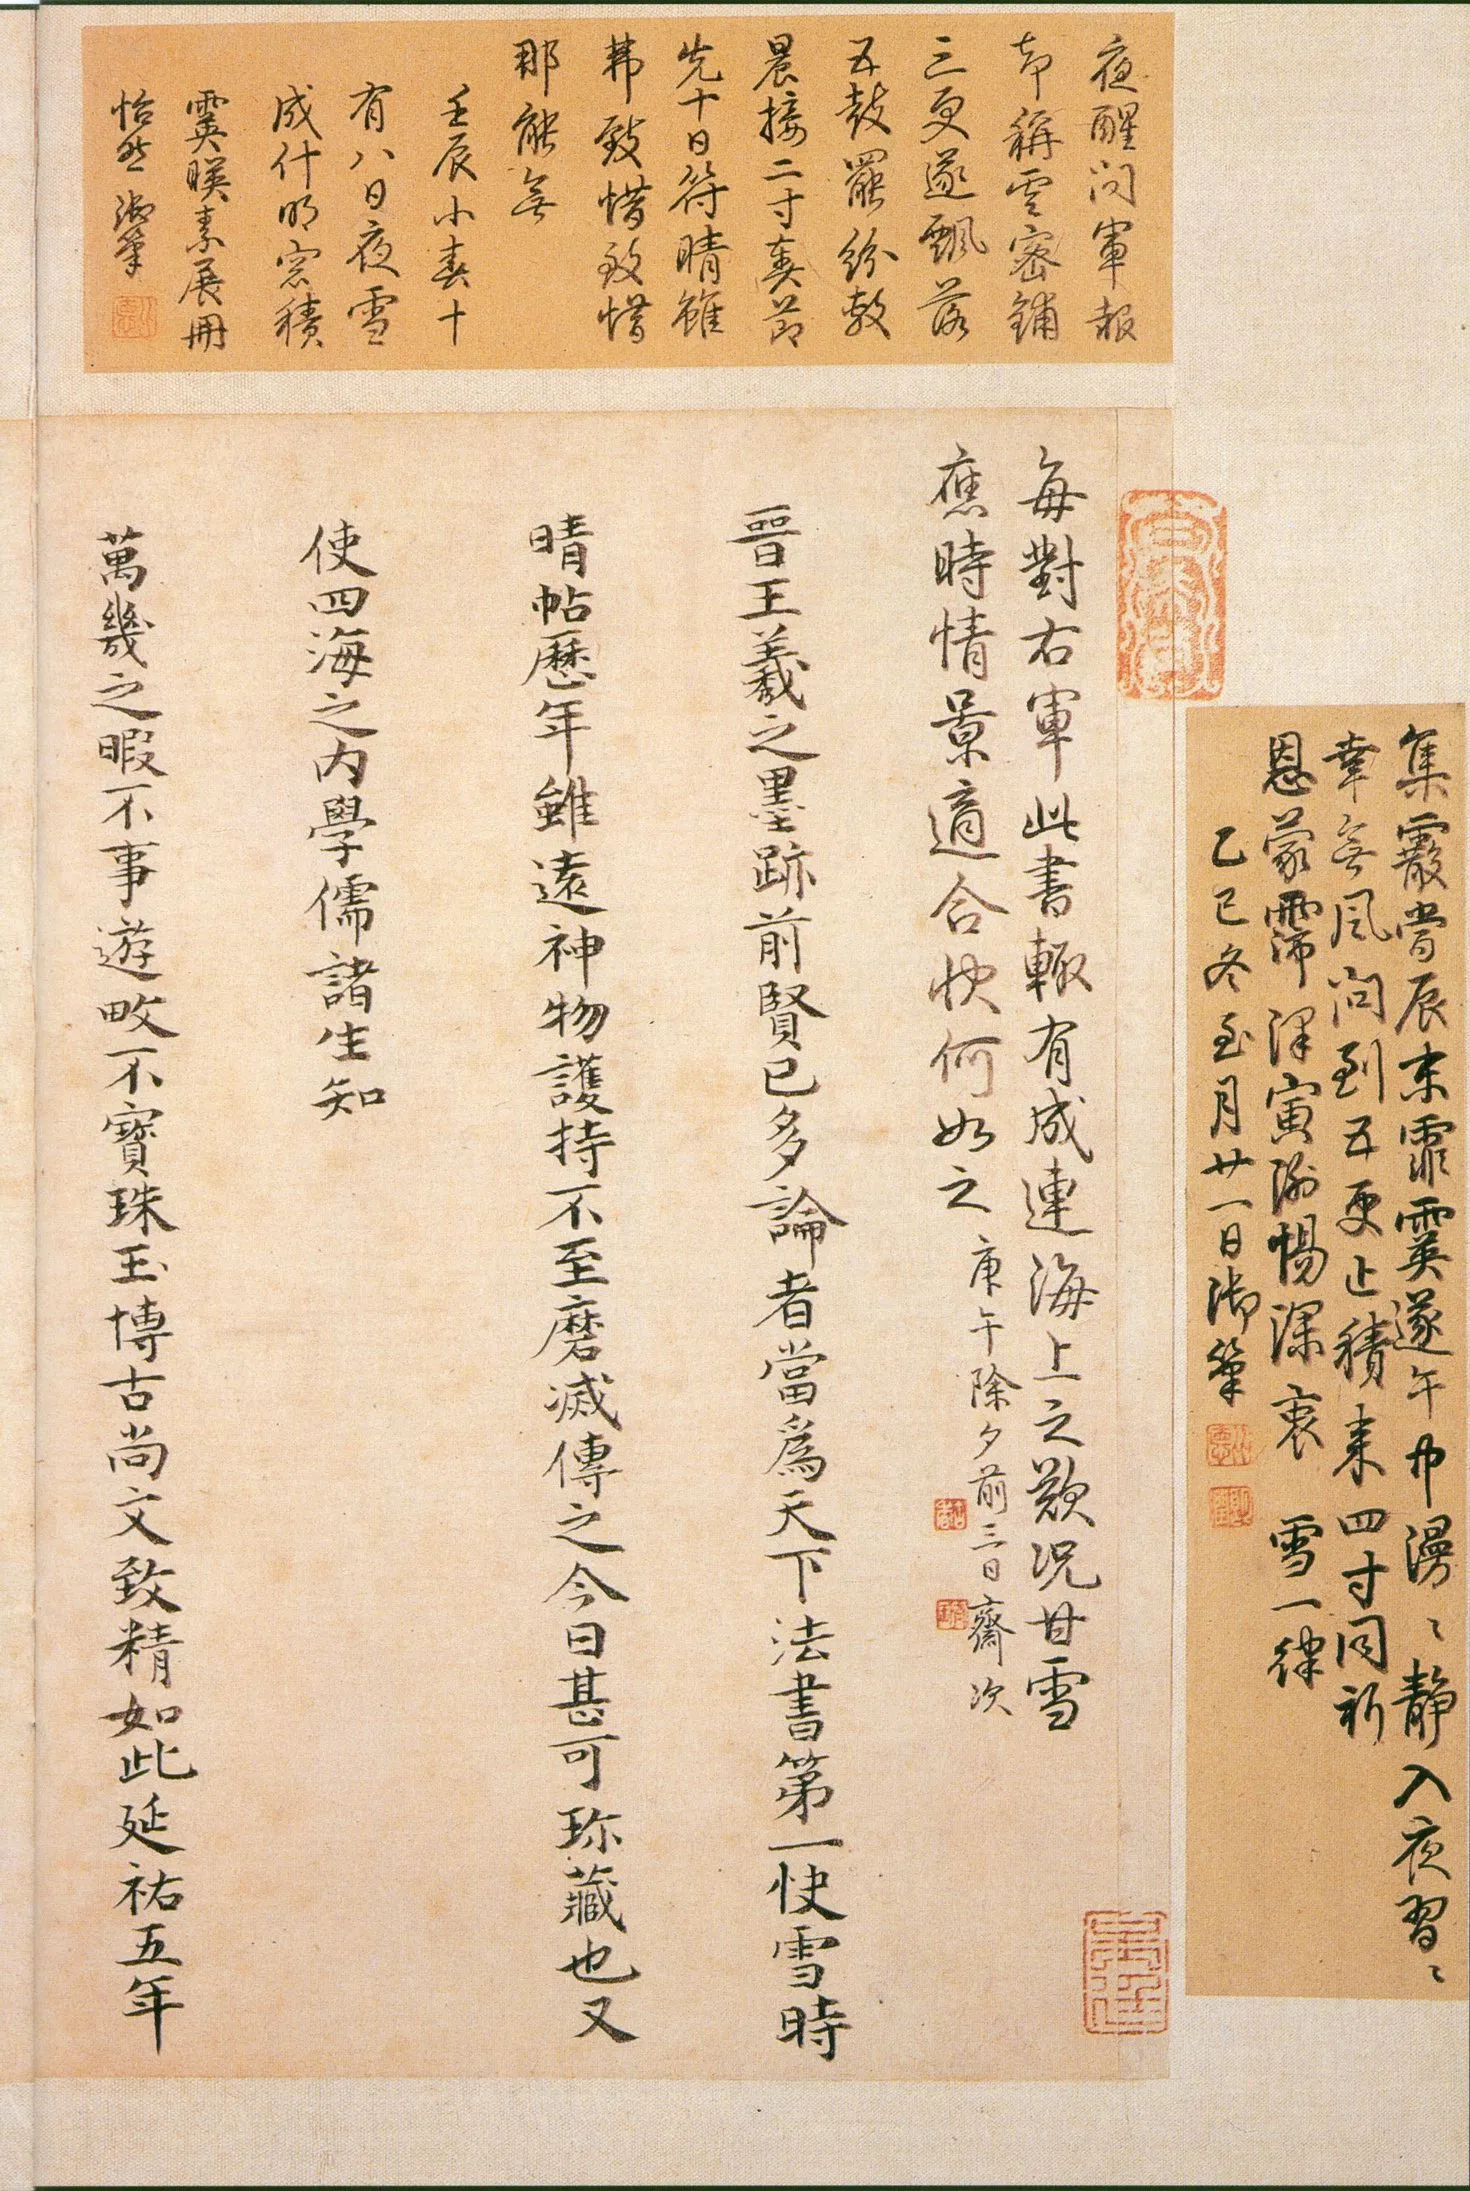 夜醒問軍報
却稱雲密鋪
三更遂飄落
五鼓罷紛敷
晨接二寸奏節
先十日符晴雖
弗致惜致惜
那能無
壬辰小春十
有八日夜雪
成什明窓積
霙暎素展冊
怡然御筆
集霰嘗辰末霏霙遂午中漫〻靜入夜習〻
幸無風問到五更止積來四寸同祈
恩蒙霈澤寅謝惕深衷 雪一律
乙巳冬至月廿一日御筆
每對右軍此書輒有成連海上之歎况甘雪
應時情景適合快何如之 庚午除夕前三日齋次
晉王羲之墨跡前賢已多論者當爲天下法書第一快雪時
晴帖歷年雖遠神物護持不至磨滅傳之今日甚可珎藏也又
使四海之内學儒諸生知
萬幾之暇不事遊畋不寶珠玉博古尚文致精如此延祐五年